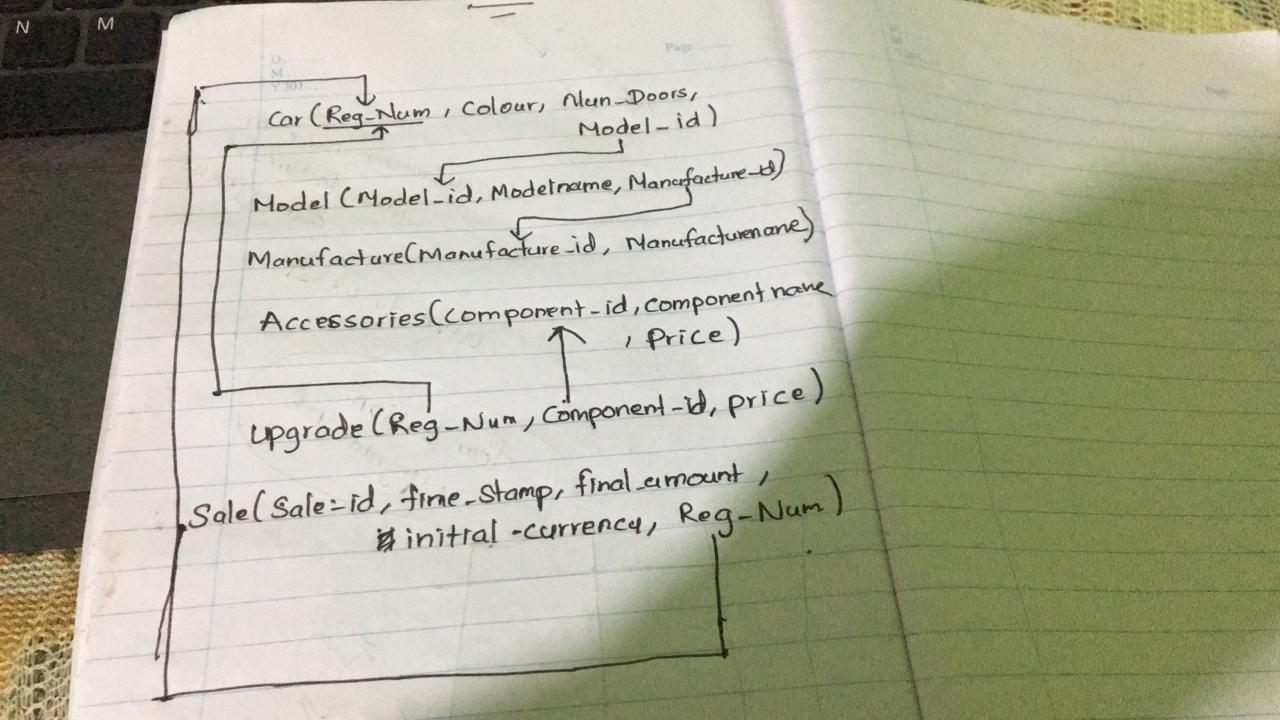 N M
Page
D.
M
Car (Reg-Num, Colour, Num-Doors,
Model-id)
Model (Model-id, Modelname, Manufacture-id)
Manufacture(Manufacture-id, Manufacturename)
Accessories(component-id, component name
, Price)
upgrade(Reg-Num, Component-id, price)
Sale(Sale-id, time-stamp, final-amount,
initial-currency, Reg-Num)